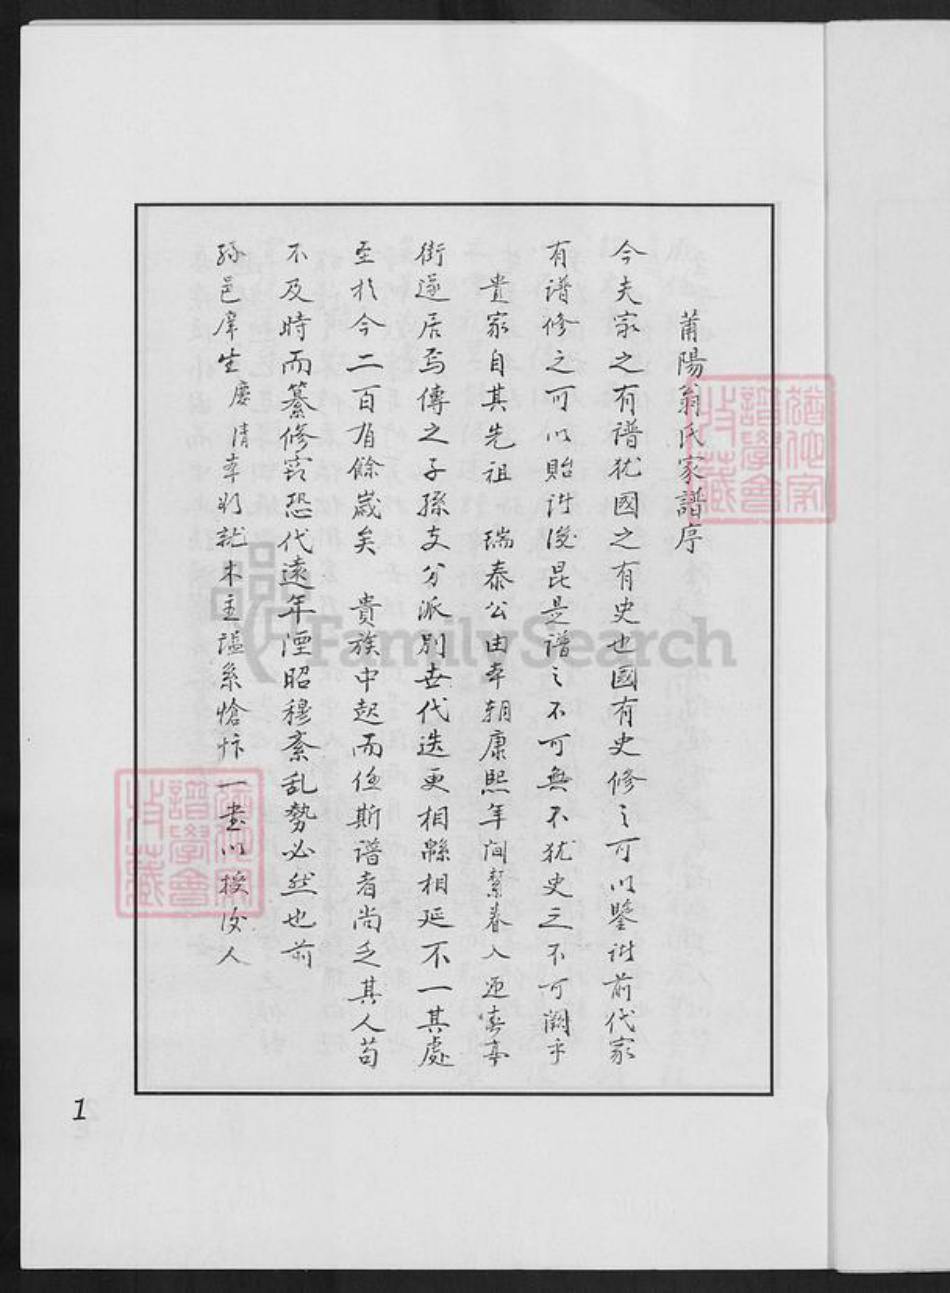 莆陽翁氏家譜序
今夫家之有譜犹國之有史也國有史修之可以鑒諸前代家
有譜修之可以貽諸後昆是譜之不可無不犹史之不可闕乎
貴家自其先祖 瑞泰公由本朝康熙年间絜眷入迎春亭
街遂居焉傳之子孫支分派別世代迭更相緜相延不一其處
至於今二百有餘歲矣 貴族中起而任斯譜者尚乏其人苟
不及時而纂修窃恐代遠年湮昭穆紊乱勢必然也前
孫邑庠生慶清率將就木主謚系 一畫以授汝人
1
FamilySearch
譜學會
收藏
譜學會
收藏